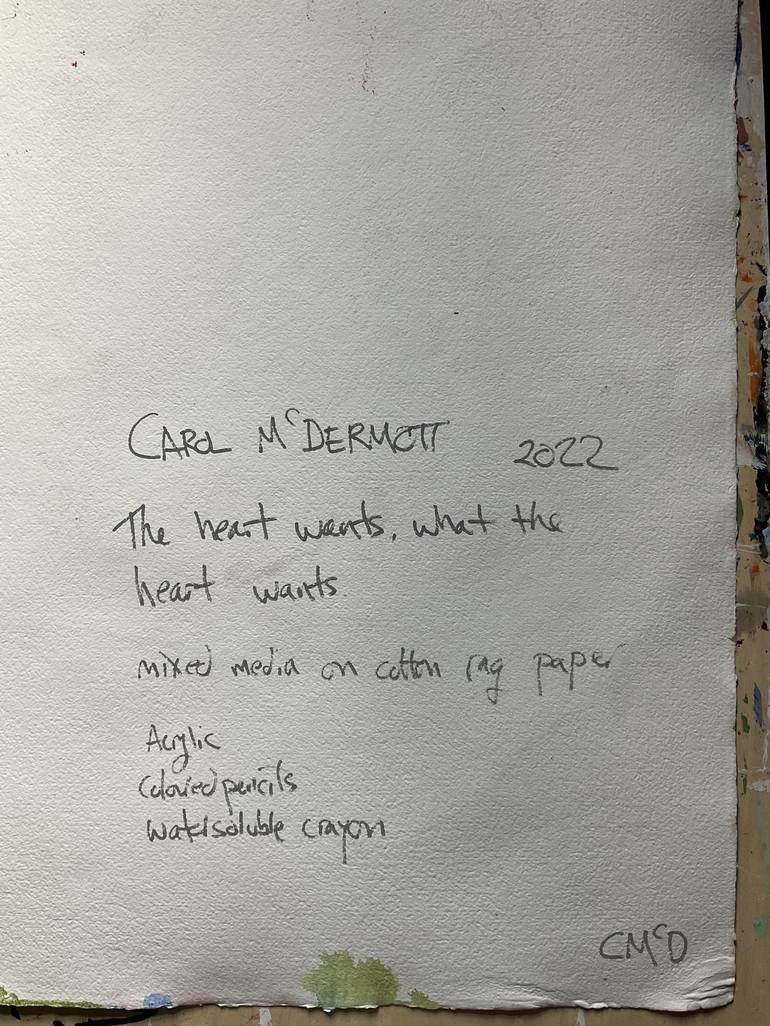 CAROL McDERMOTT 2022
The heart wants, what the
heart wants
mixed media on cotton rag paper
Acrylic
Colored pencils
Watersoluble crayon
CMcD